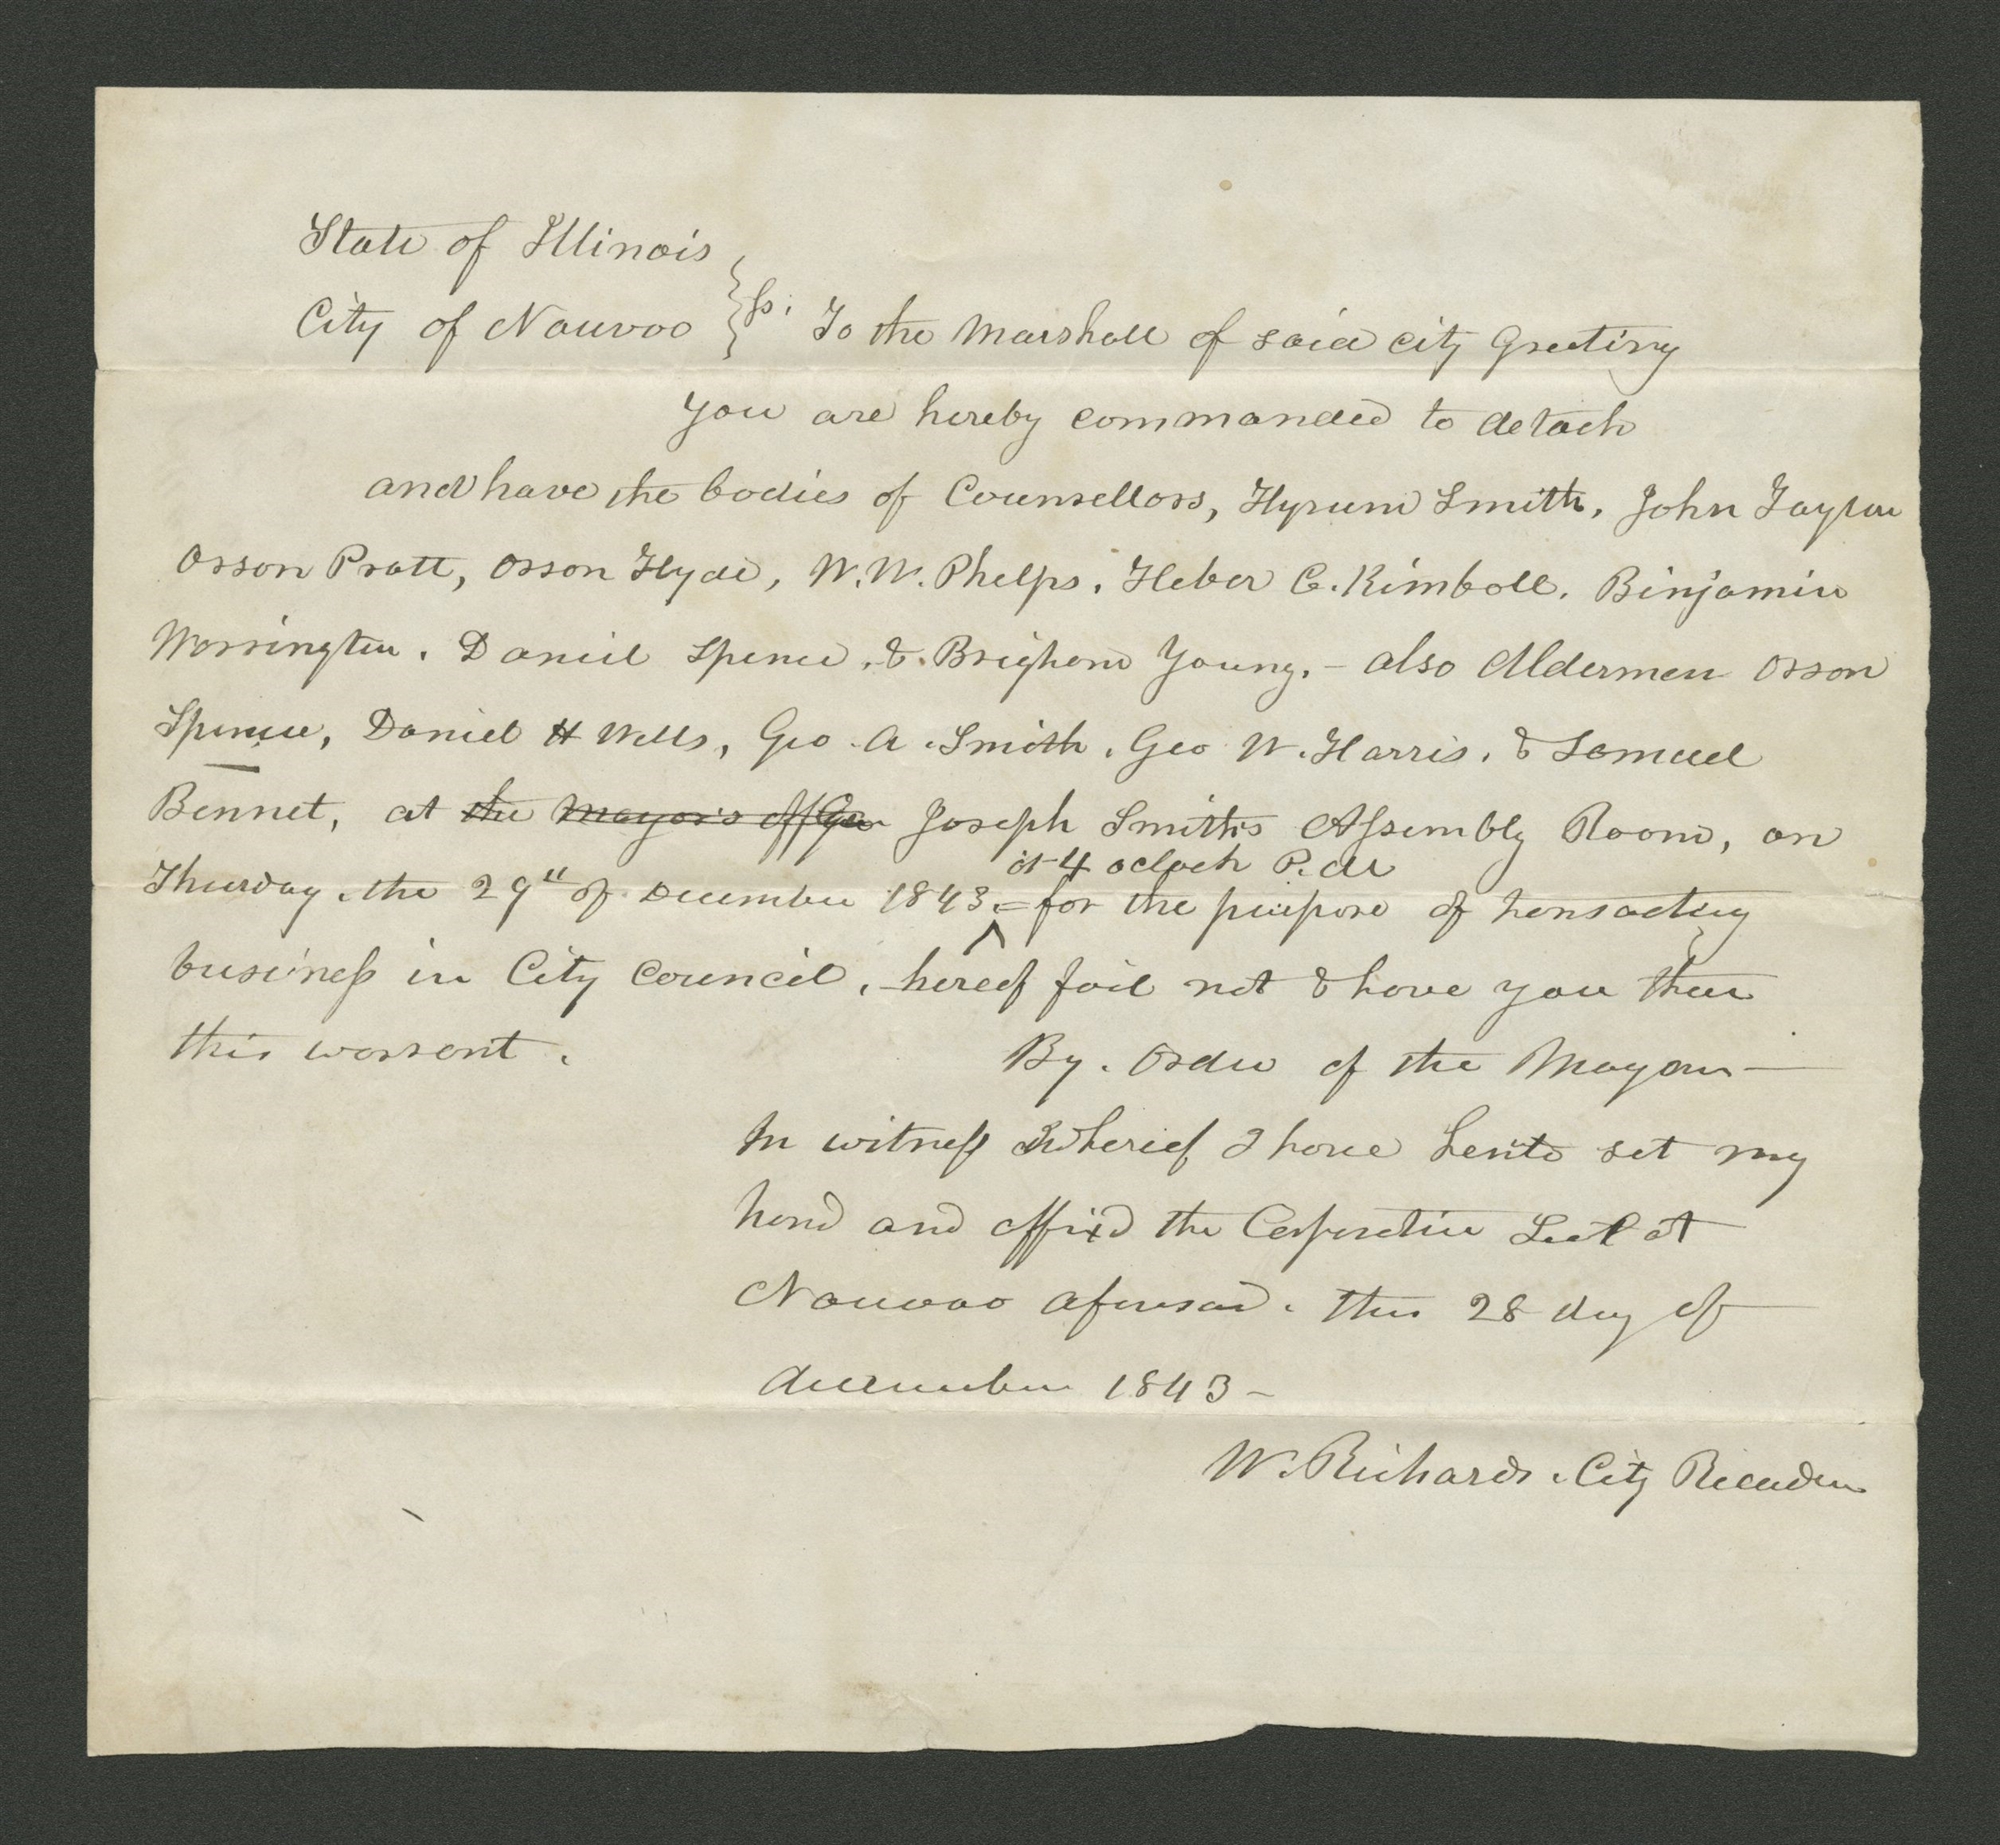 State of Illinois
City of Nauvoo } ss. To the Marshall of said city Greeting
You are hereby commanded to detach
and have the bodies of Counsellors, Hyrum Smith, John Taylor
Orson Pratt, Orson Hyde, W. W. Phelps, Heber C. Kimball, Binjamin
Warrington, Daniel Spencer, & Brigham Young, – also Aldermen Orson
Spencer, Daniel H Wells, Geo. A. Smith, Geo W. Harris, & Samuel
Bennet, at the Mayor's office Joseph Smith's Assembly Room, on
at 4 oclock P.M
Thursday the 29th of December 1843 = for the purpose of transacting
business in City Council, hereof fail not & have you then
this warrant.
By Order of the Mayor—
In witness Whereof I have hereto set my
hand and affixd the Corporation Seal at
Nauvoo aforesaid. this 28 day of
december 1843–
W. Richards. City Recorder